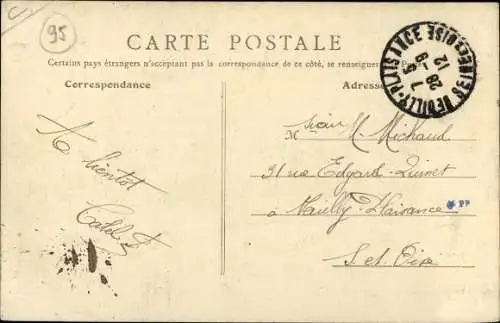 95
CARTE POSTALE
Certains pays étrangers n'acceptant pas la correspondance de ce côté, se renseigner
Correspondance
Adresse
NEUILLY-PLAISANCE SEINE ET OISE
28
12
A bientôt
M Michaud
31 rue Edgard Quinet
à Neuilly Plaisance
S. et Oise
PP